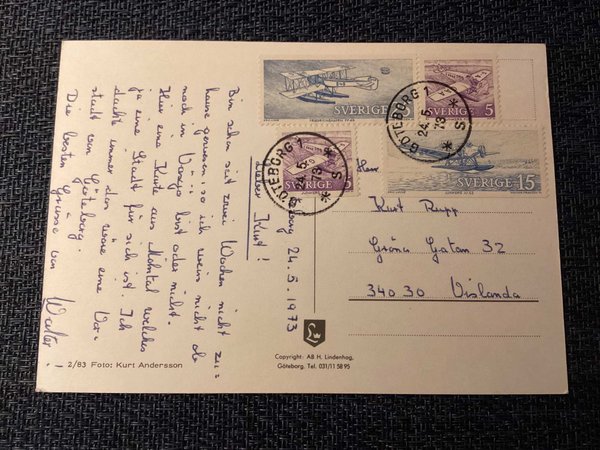 SVERIGE 15
SVERIGE 5
GÖTEBORG 1
24.5.
73
S
SVERIGE 15
5
GÖTEBORG 1
5.
73
S
Göteborg 24.5.1973
Lieber Kurt!
Bin schon seit zwei Wochen nicht zu-
hause gewesen, so ich weis nicht ob
noch in Växjö bist oder nicht.
Hier eine Karte aus Mölndal welches
ja eine Stadt für sich ist. Ich
dachte immer das wäre eine Vor-
stadt von Göteborg.
Die besten Grüsse von
Walter!
Herr
Kurt Rupp
Gröna Gatan 32
340 30 Vislanda
2/83 Foto: Kurt Andersson
Copyright: AB H. Lindenhag,
Göteborg. Tel. 031/11 58 95